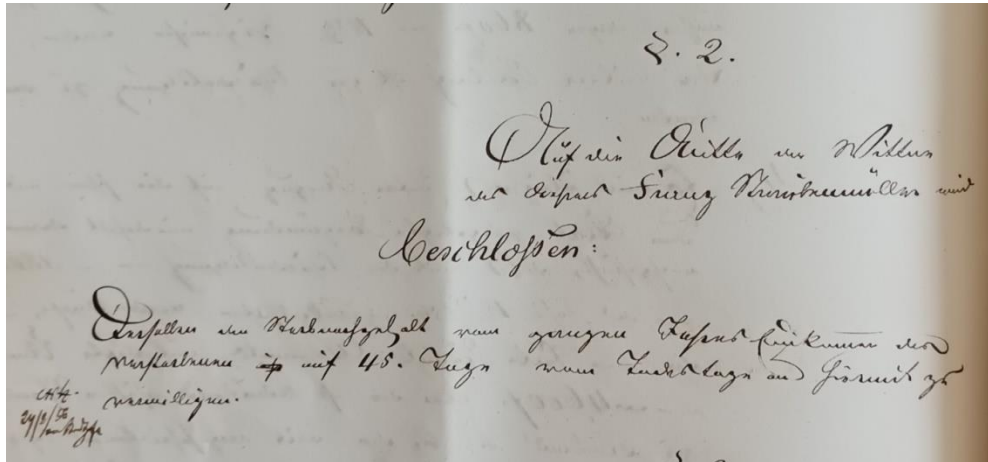 §. 2.
Auf die Bitte der Wittwe
des Franz Straubenmüller wird
Beschlossen:
Derselben den Sterbenachgehalt vom ganzen Jahres Einkommen des
Verstorbenen auf 45. Tage vom Todestage an hiermit zu
verwilligen.
24/8/56